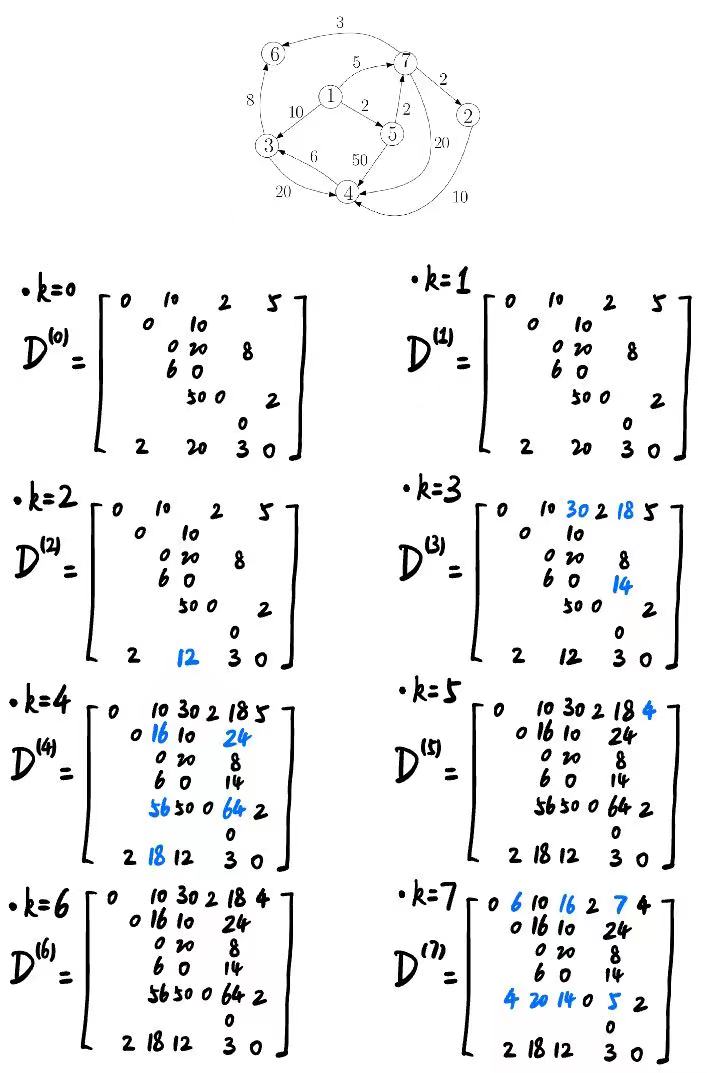 3
6
5
7
2
8
1
2
2
10
2
3
5
20
6
50
20
4
10
• k=0
0 10 2 5
0 10
D^(0) =
0 20 8
6 0
50 0 2
0
2 20 3 0
• k=1
0 10 2 5
0 10
D^(1) =
0 20 8
6 0
50 0 2
0
2 20 3 0
• k=2
0 10 2 5
0 10
D^(2) =
0 20 8
6 0
50 0 2
0
2 12 3 0
• k=3
0 10 30 2 18 5
0 10
D^(3) =
0 20 8
6 0 14
50 0 2
0
2 12 3 0
• k=4
0 10 30 2 18 5
0 16 10 24
D^(4) =
0 20 8
6 0 14
56 50 0 64 2
0
2 18 12 3 0
• k=5
0 10 30 2 18 4
0 16 10 24
D^(5) =
0 20 8
6 0 14
56 50 0 64 2
0
2 18 12 3 0
• k=6
0 10 30 2 18 4
0 16 10 24
D^(6) =
0 20 8
6 0 14
56 50 0 64 2
0
2 18 12 3 0
• k=7
0 6 10 16 2 7 4
0 16 10 24
D^(7) =
0 20 8
6 0 14
4 20 14 0 5 2
0
2 18 12 3 0